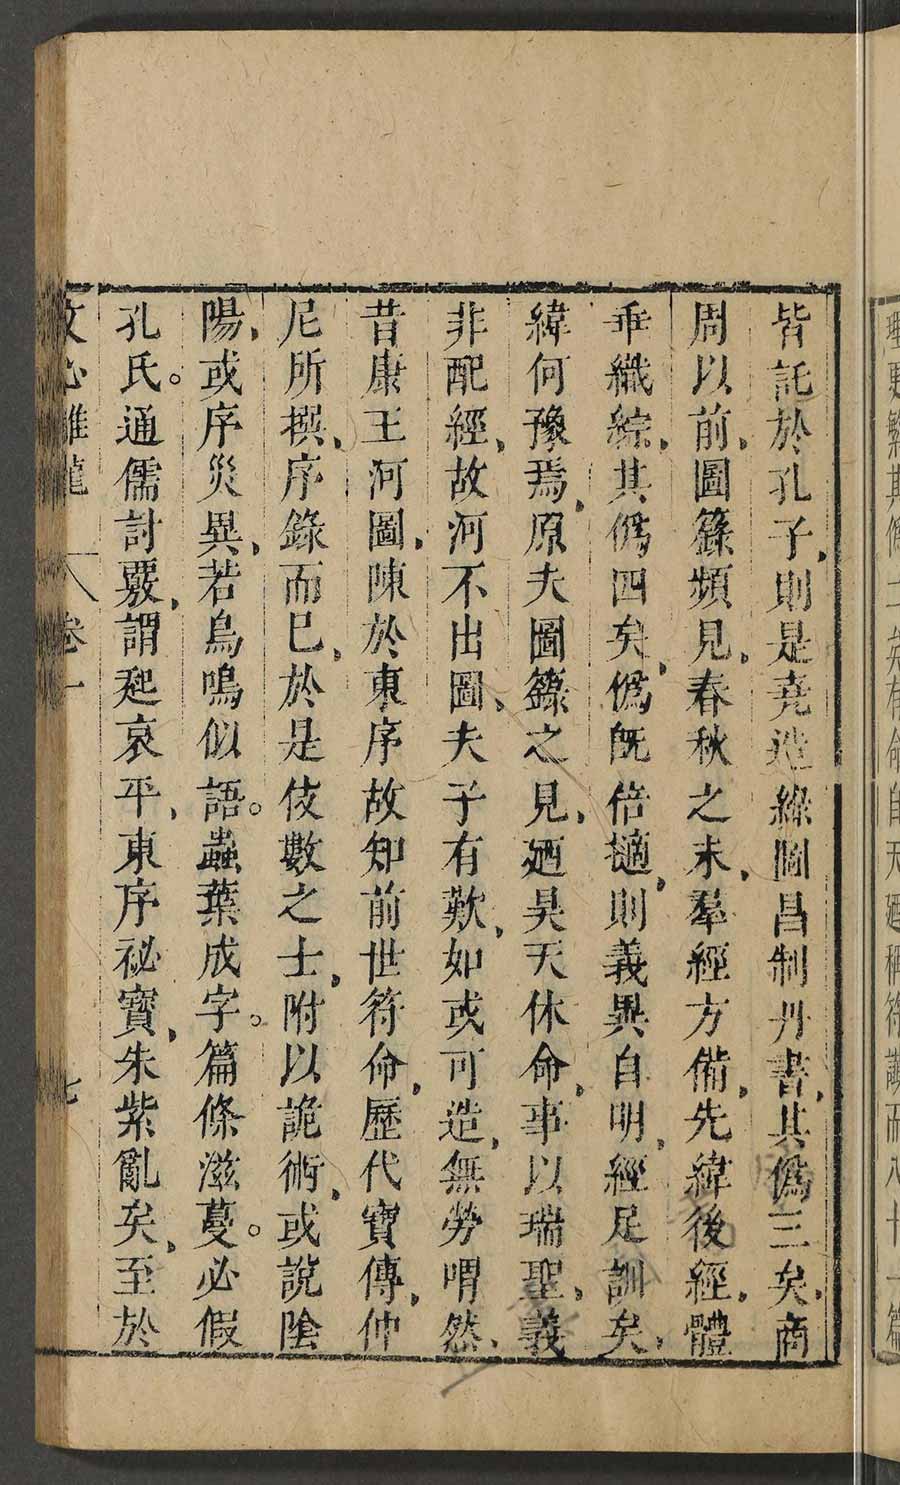 皆託於孔子、則是堯造綠圖昌制丹書、其僞三矣、商
周以前、圖籙頻見、春秋之末、羣經方備、先緯後經、體
乖織綜、其僞四矣、僞旣倍擿、則義異自明、經足訓矣、
緯何豫焉、原夫圖籙之見、廼昊天休命、事以瑞聖、義
非配經、故河不出圖、夫子有歎、如或可造、無勞喟然、
昔康王河圖、陳於東序故知前世符命、歷代寶傳、仲
尼所撰、序錄而已、於是伎數之士、附以詭術、或說陰
陽、或序災異、若鳥鳴似語。蟲葉成字。篇條滋蔓。必假
孔氏。通儒討覈、謂起哀平、東序祕寶、朱紫亂矣、至於
文心雕龍 卷一 七